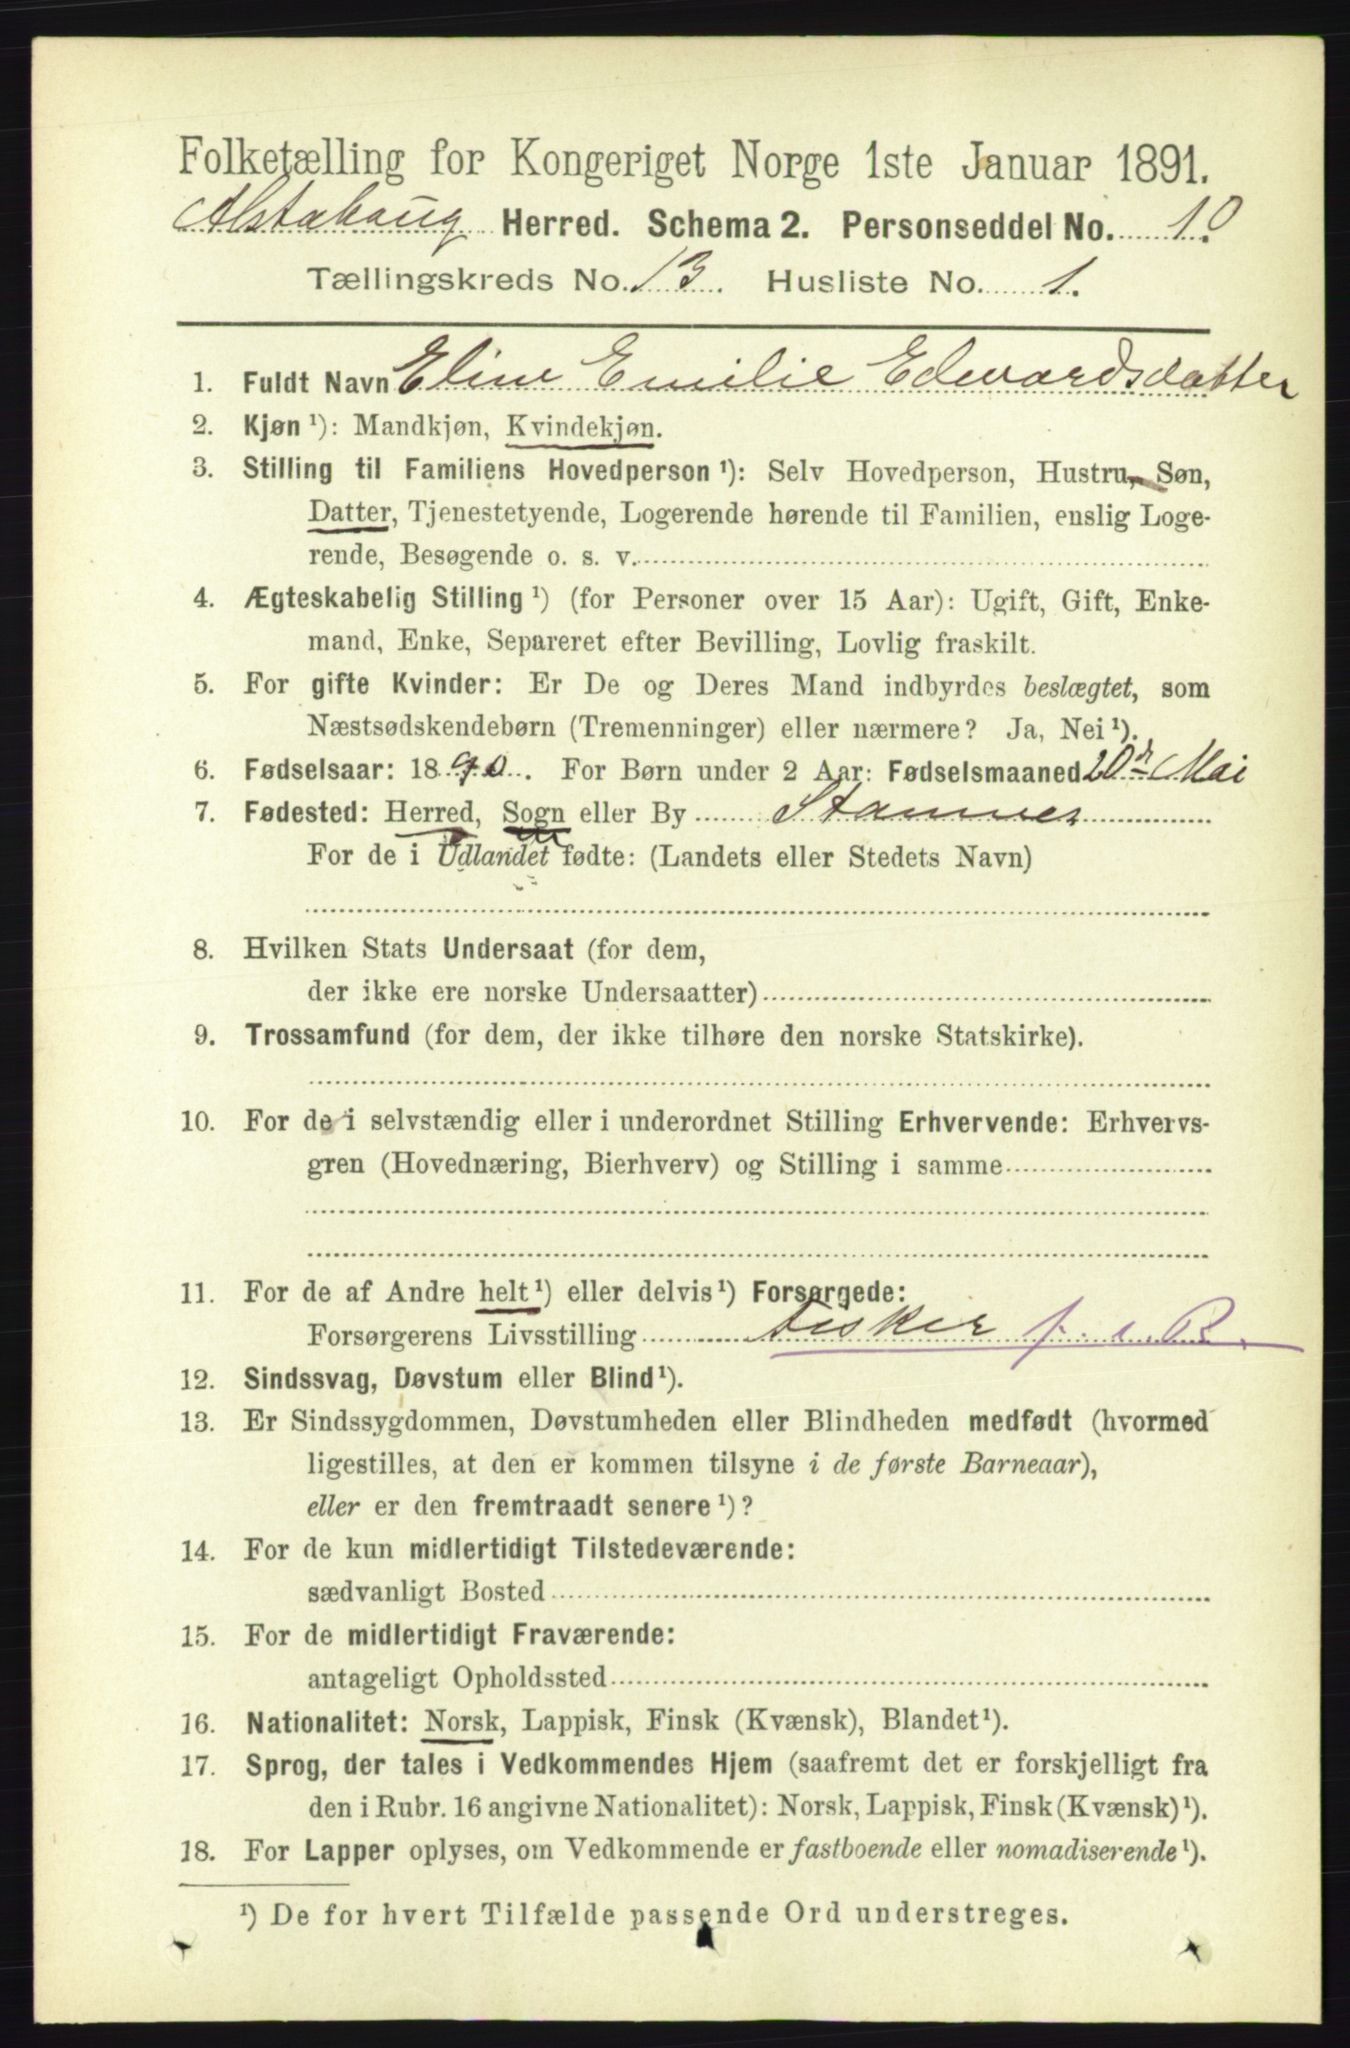 Folketælling for Kongeriget Norge 1ste Januar 1891.
Alstahaug Herred. Schema 2. Personseddel No. 10
Tællingskreds No. 13. Husliste No. 1.
1. Fuldt Navn Eline Emilie Edevardsdatter
2. Kjøn ¹): Mandkjøn, Kvindekjøn.
3. Stilling til Familiens Hovedperson ¹): Selv Hovedperson, Hustru, Søn,
Datter, Tjenestetyende, Logerende hørende til Familien, enslig Loge-
rende, Besøgende o. s. v.
4. Ægteskabelig Stilling ¹) (for Personer over 15 Aar): Ugift, Gift, Enke-
mand, Enke, Separeret efter Bevilling, Lovlig fraskilt.
5. For gifte Kvinder: Er De og Deres Mand indbyrdes beslægtet, som
Næstsødskendebørn (Tremenninger) eller nærmere? Ja, Nei ¹).
6. Fødselsaar: 1890. For Børn under 2 Aar: Fødselsmaaned 20de Mai
7. Fødested: Herred, Sogn eller By Stamnes
For de i Udlandet fødte: (Landets eller Stedets Navn)
8. Hvilken Stats Undersaat (for dem,
der ikke ere norske Undersaatter)
9. Trossamfund (for dem, der ikke tilhøre den norske Statskirke).
10. For de i selvstændig eller i underordnet Stilling Erhvervende: Erhvervs-
gren (Hovednæring, Bierhverv) og Stilling i samme
11. For de af Andre helt ¹) eller delvis ¹) Forsørgede:
Forsørgerens Livsstilling Fisker
12. Sindssvag, Døvstum eller Blind ¹).
13. Er Sindssygdommen, Døvstumheden eller Blindheden medfødt (hvormed
ligestilles, at den er kommen tilsyne i de første Barneaar),
eller er den fremtraadt senere ¹)?
14. For de kun midlertidigt Tilstedeværende:
sædvanligt Bosted
15. For de midlertidigt Fraværende:
antageligt Opholdssted
16. Nationalitet: Norsk, Lappisk, Finsk (Kvænsk), Blandet ¹).
17. Sprog, der tales i Vedkommendes Hjem (saafremt det er forskjelligt fra
den i Rubr. 16 angivne Nationalitet): Norsk, Lappisk, Finsk (Kvænsk) ¹).
18. For Lapper oplyses, om Vedkommende er fastboende eller nomadiserende ¹).
¹) De for hvert Tilfælde passende Ord understreges.